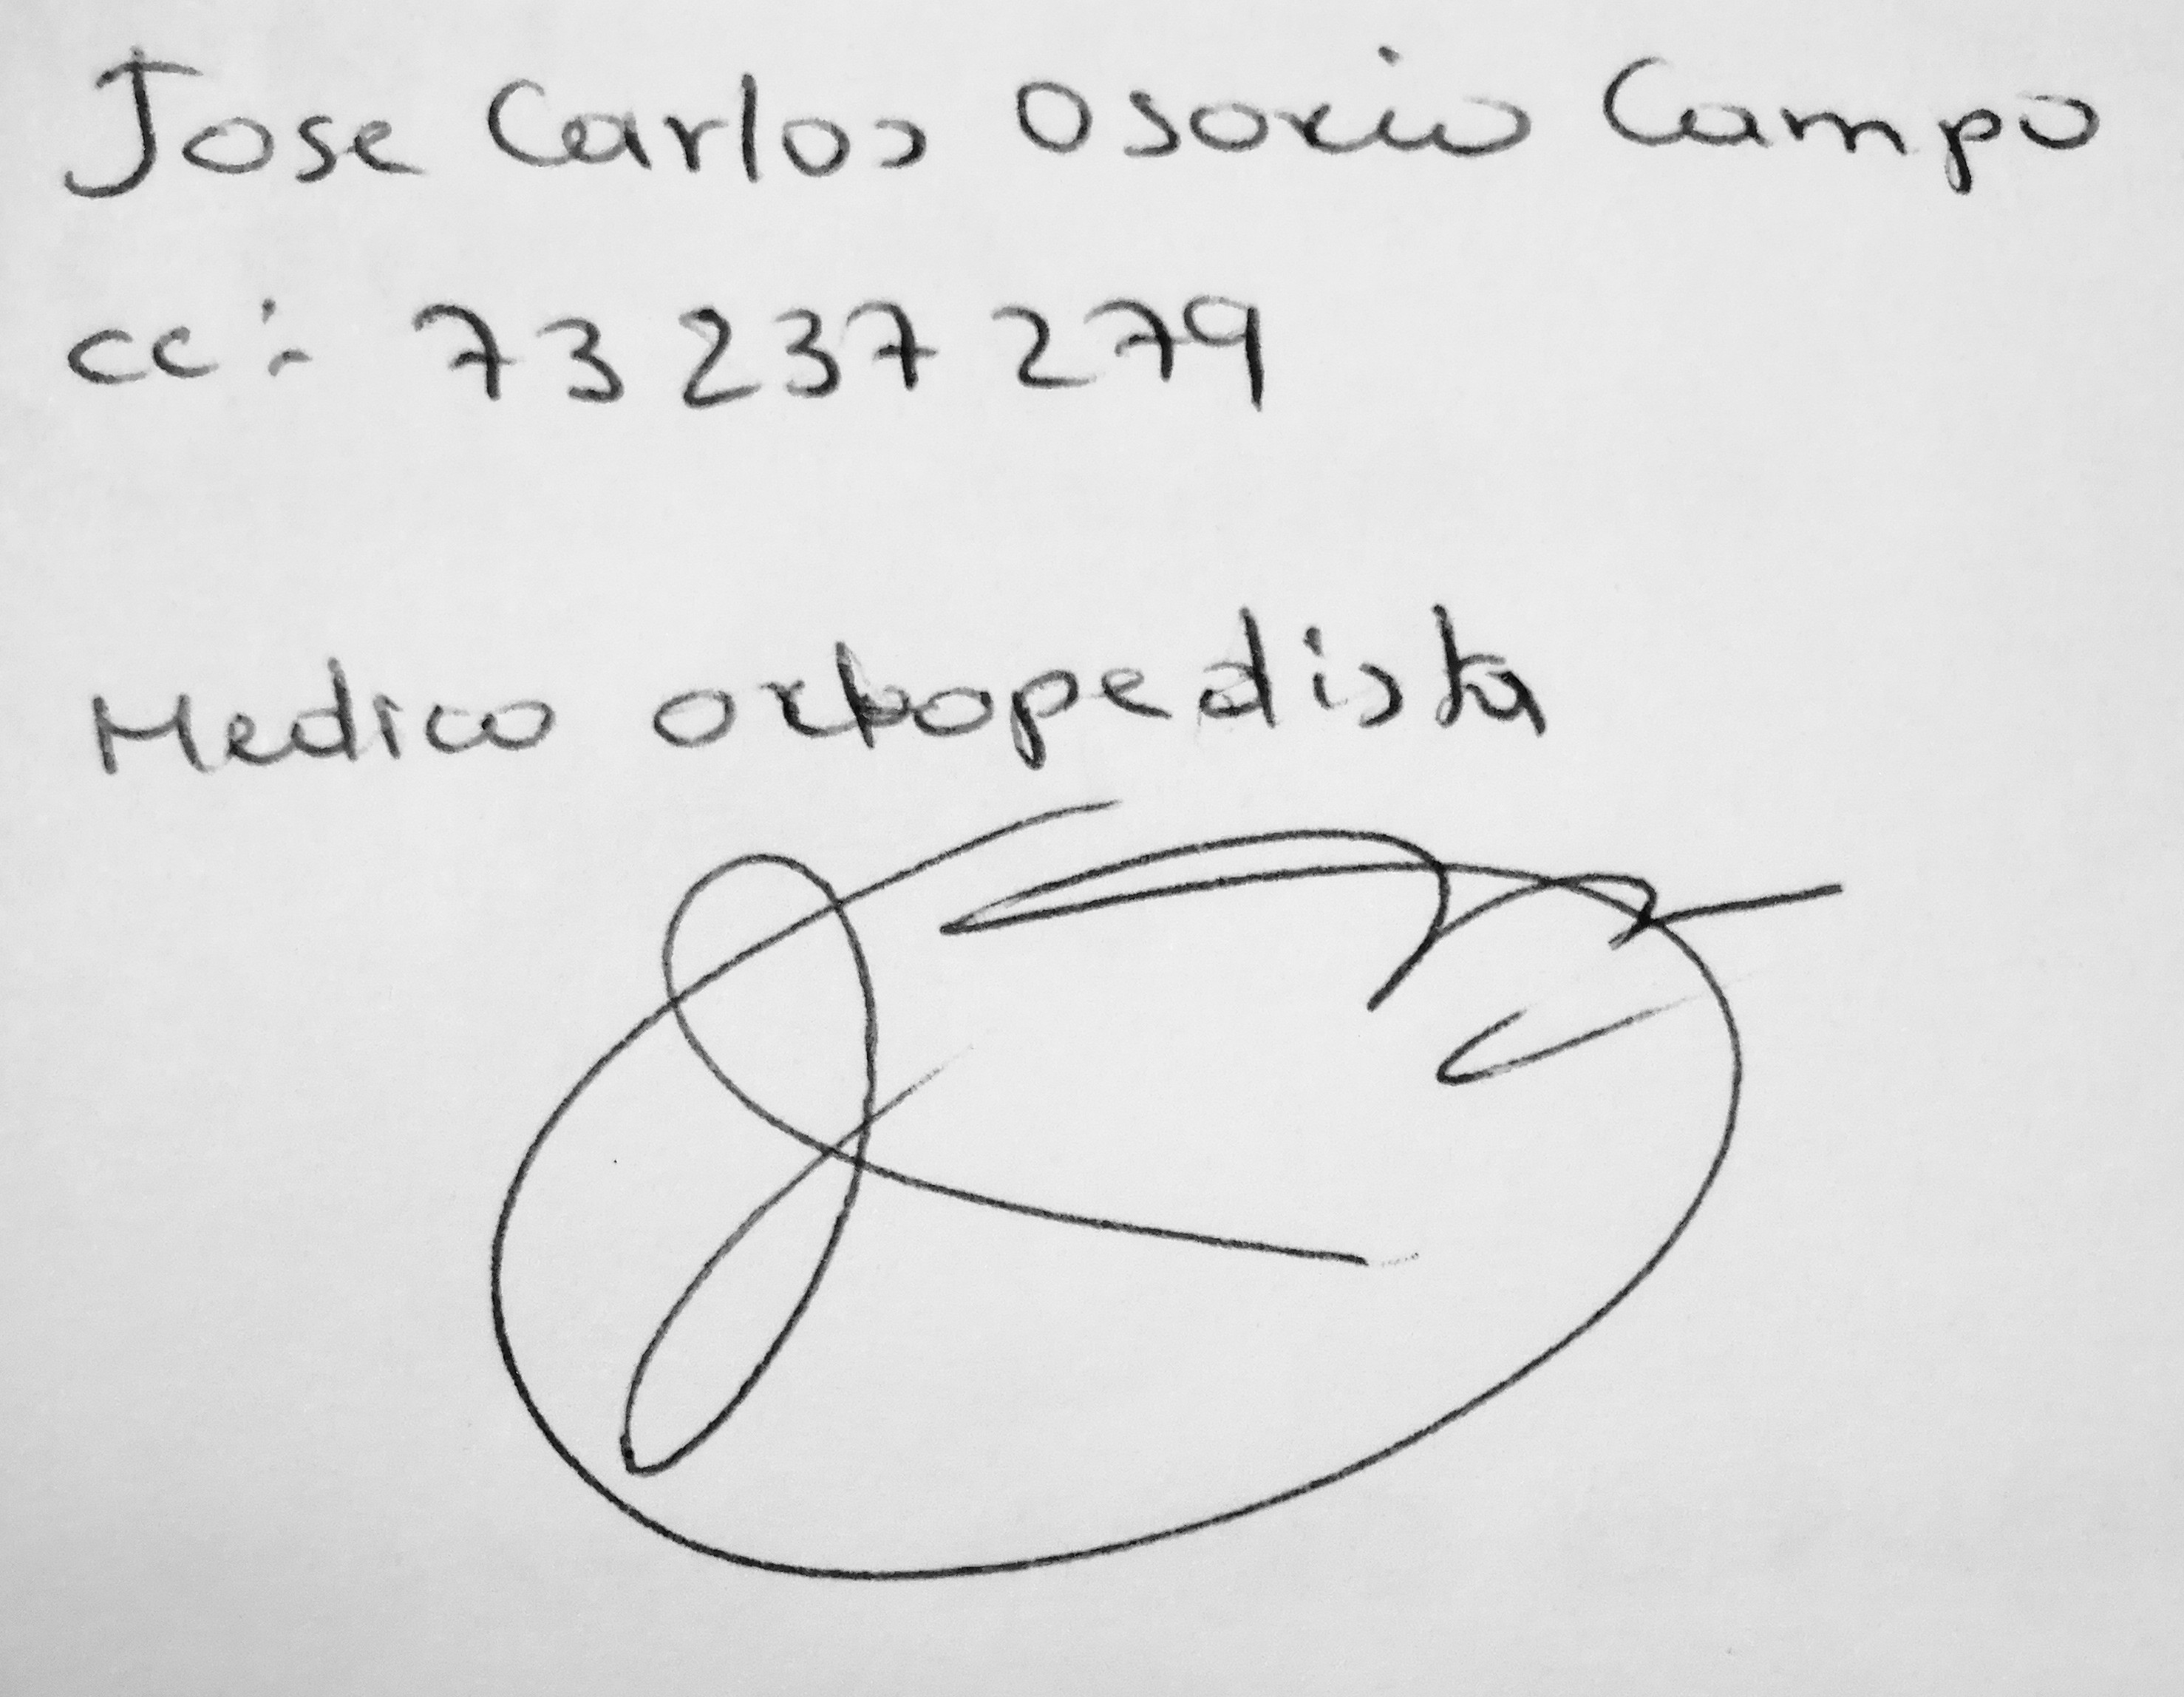 Jose Carlos Osorio Campo
cc: 73 237 279
Medico ortopedista